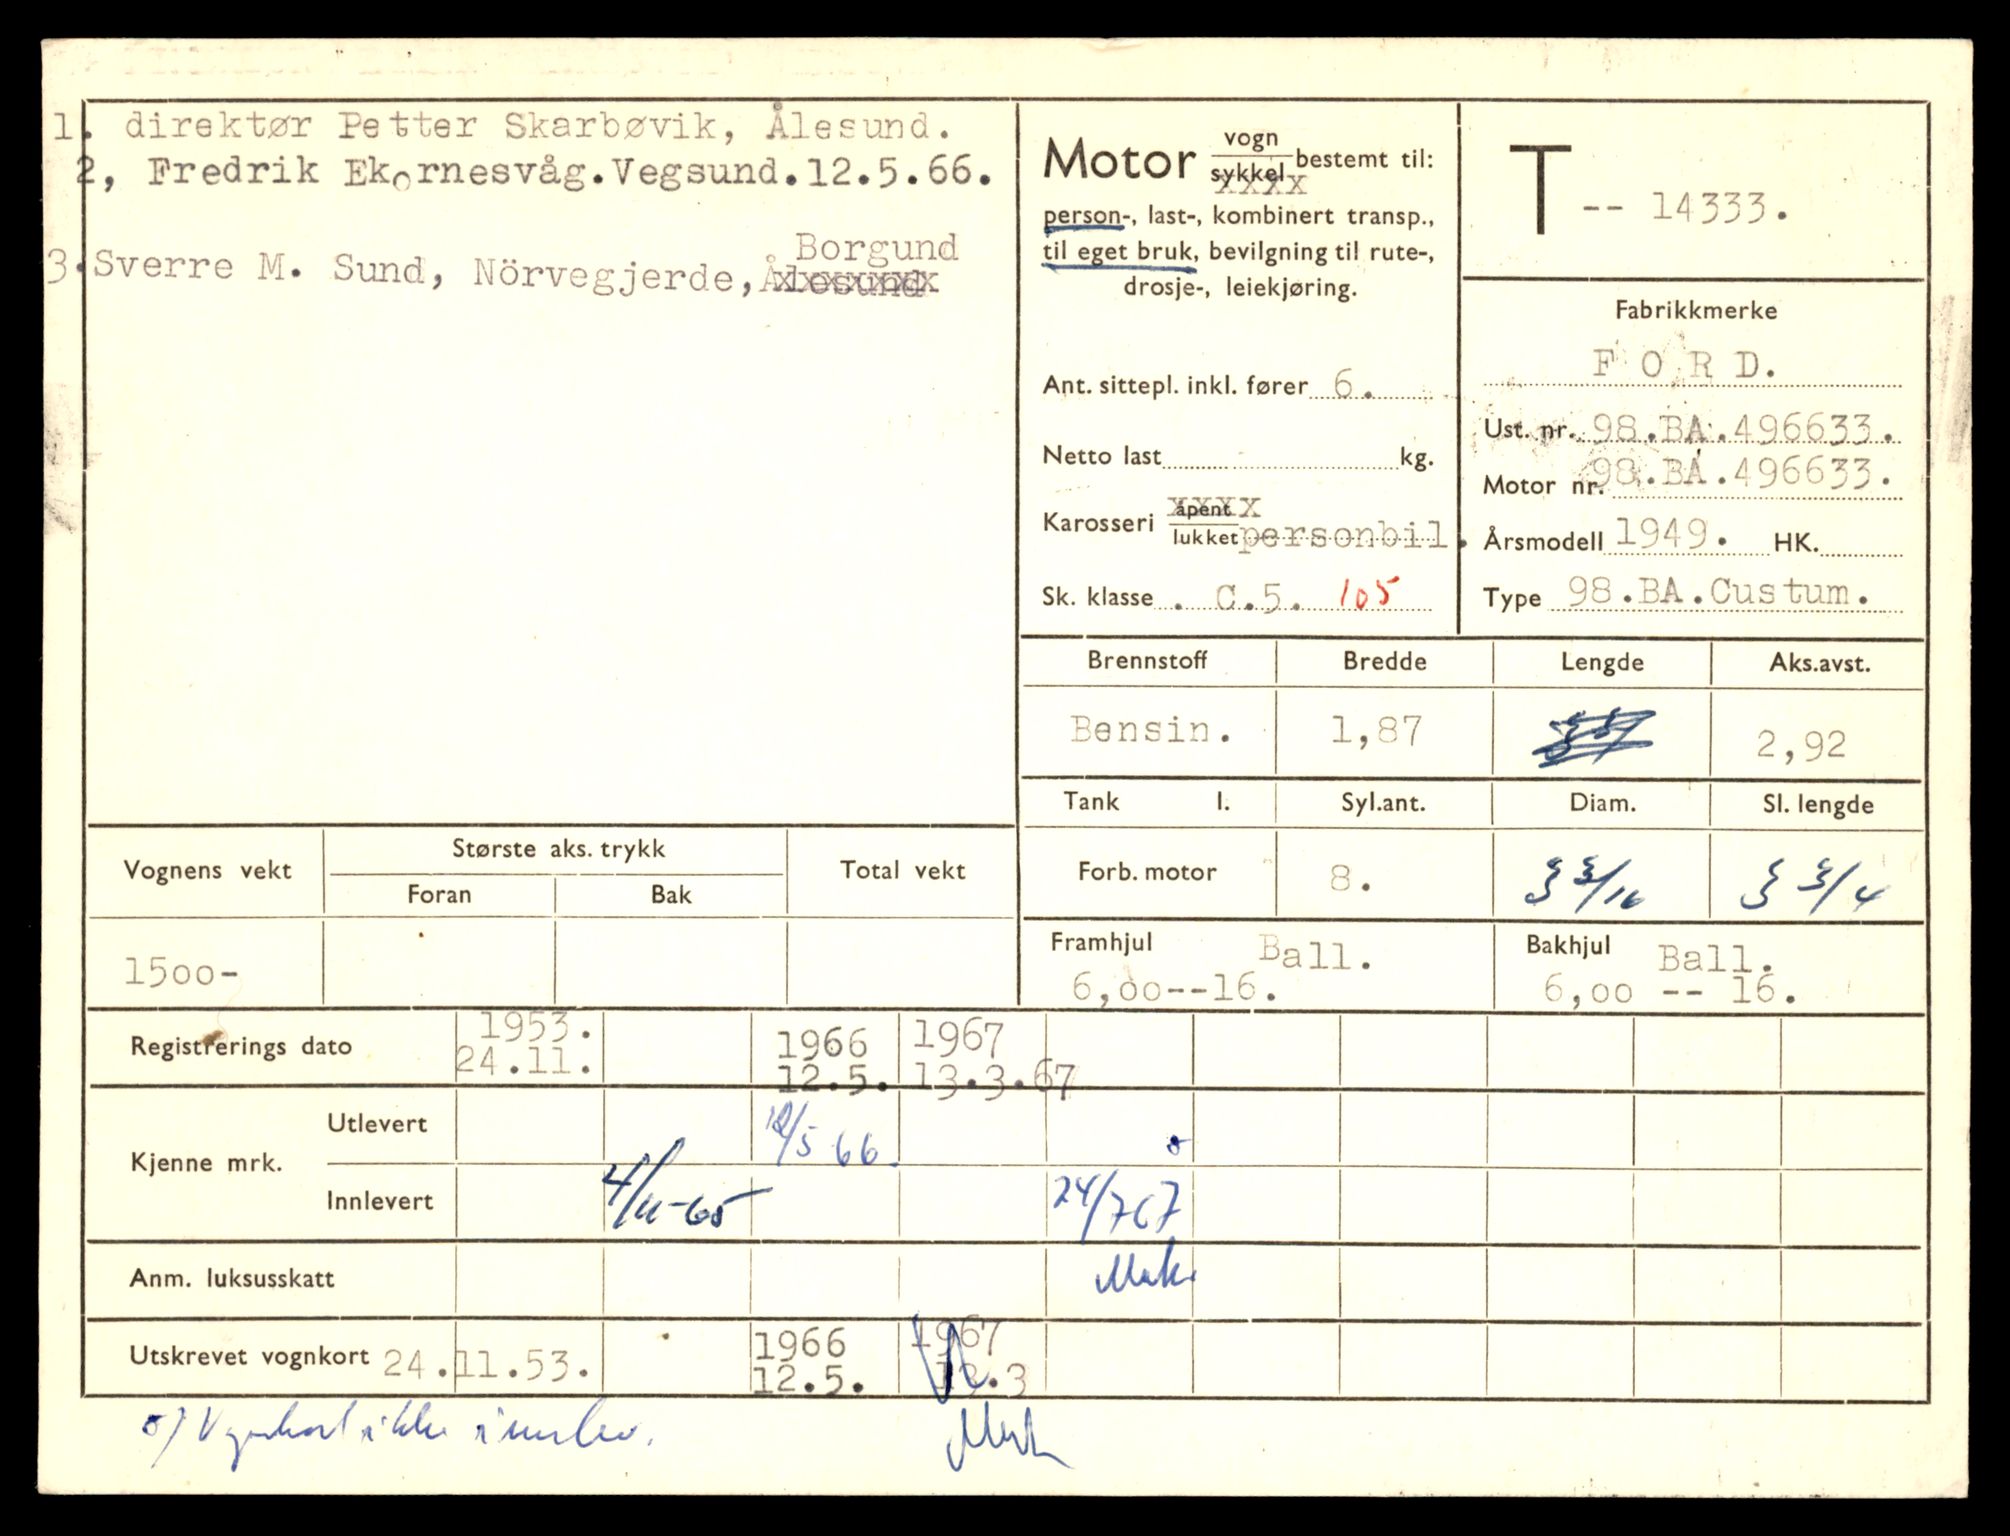 1. direktør Petter Skarbøvik, Ålesund.
2, Fredrik Ekornesvåg.Vegsund.12.5.66.
Borgund
3.Sverre M. Sund, Nörvegjerde,Ålesund
Motor vogn
sykkel bestemt til:
xxxx
person-, last-, kombinert transp.,
til eget bruk, bevilgning til rute-,
drosje-, leiekjøring.
Ant. sittepl. inkl. fører 6.
Netto last kg.
xxxx
Karosseri åpent
lukket personbil.
Sk. klasse . C.5. 105
T -- 14333.
Fabrikkmerke
F O R D.
Ust. nr. 98.BA.496633.
Motor nr. 98.BA.496633.
Årsmodell 1949. HK.
Type 98.BA.Custum.
Brennstoff Bredde Lengde Aks.avst.
Bensin. 1,87 2,92
Tank l. Syl.ant. Diam. Sl. lengde
Forb. motor 8. 3 3/16 3 3/4
Framhjul Ball. Bakhjul Ball.
6,oo--16. 6,oo -- 16.
Vognens vekt Største aks. trykk Total vekt
Foran Bak
15oo-
Registrerings dato 1953. 1966 1967
24.11. 12.5. 13.3.67
Kjenne mrk.
Utlevert 12/5 66.
Innlevert 4/11-65 24/7 67
Anm. luksusskatt
Utskrevet vognkort 24.11.53. 1966 1967
12.5. 13.3
o) Vognkort ikke innlev.